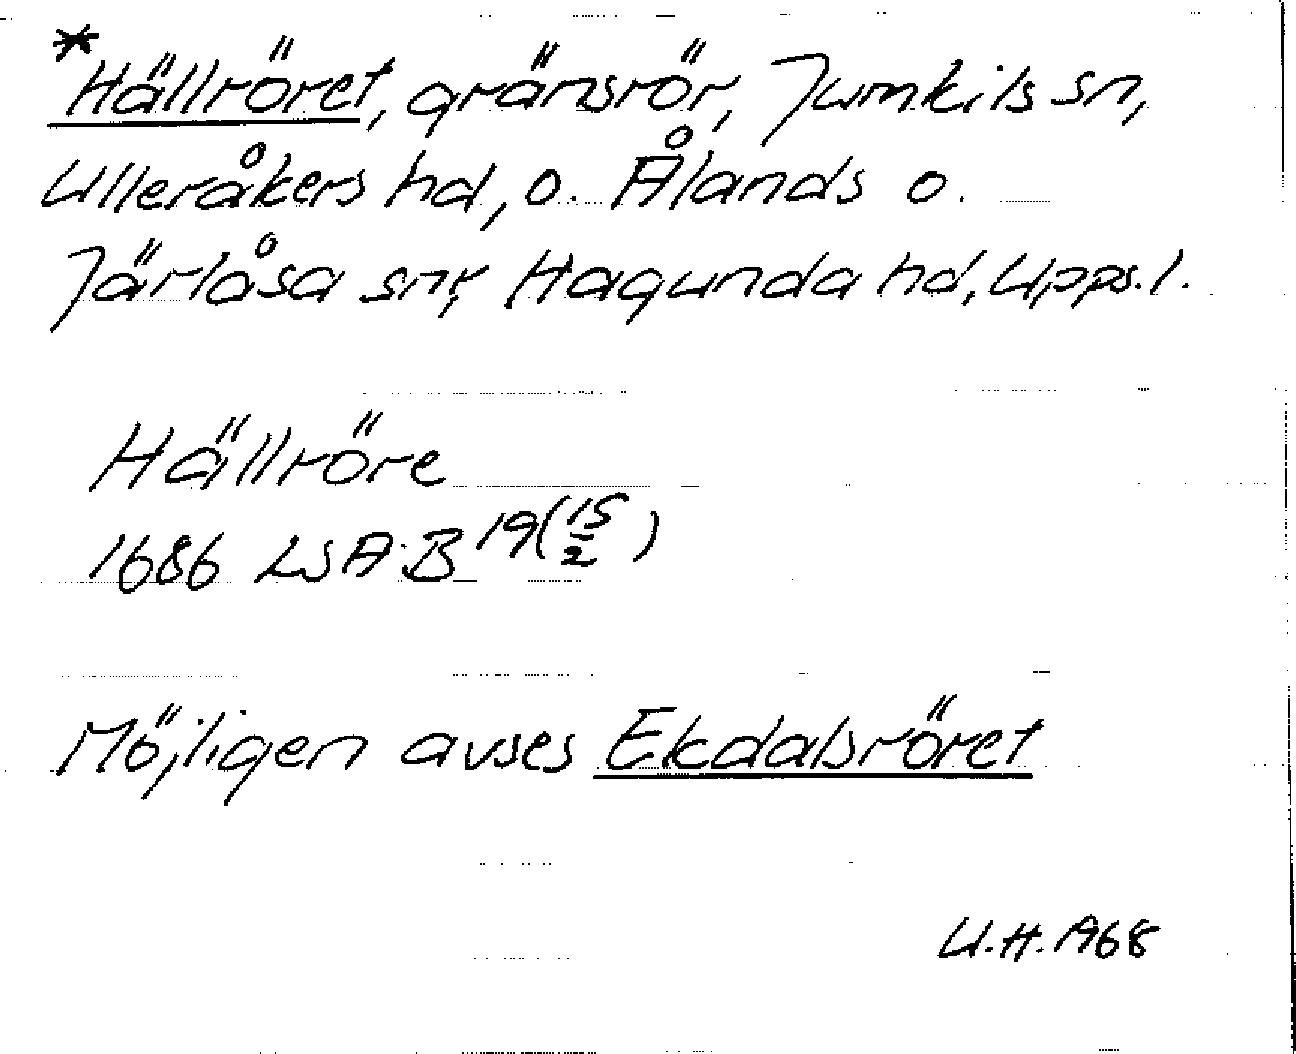 *Hällröret, gränsrör, Jumkils sn,
Ulleråkers hd, o. Ålands o.
Järlåsa snr, Hagunda hd, Upps. l.
Hällröre
1686 LSA B 19(15/2)
Möjligen avses Ekdalsröret
U.H. 1968